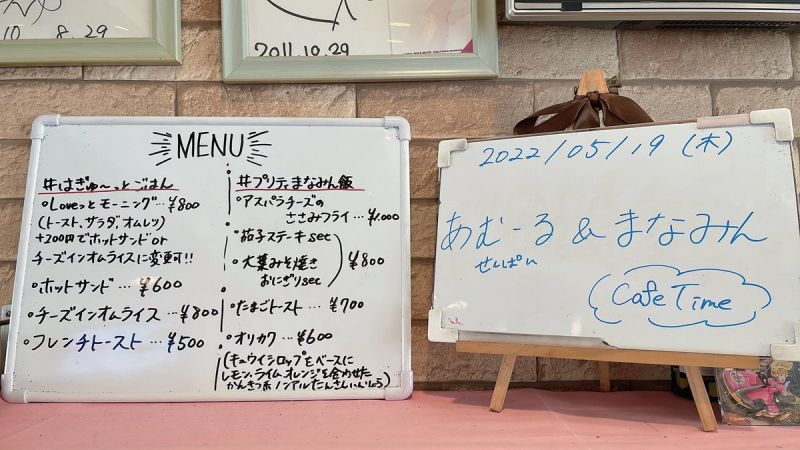 10 8.29
2011.10.29
MENU
#はぎゅ〜っとごはん
・Loveっとモーニング…¥800
(トースト、サラダ、オムレツ)
+200円でホットサンドor
チーズインオムライスに変更可!!
・ホットサンド…¥600
・チーズインオムライス…¥800
・フレンチトースト…¥500
#プリティまなみん飯
・アスパラチーズの
ささみフライ…¥1,000
・茄子ステーキset
・大葉みそ焼き
おにぎりset
¥800
・たまごトースト…¥700
・オリカク…¥600
(キュウイシロップをベースに
レモン、ライム、オレンジを合わせた
かんきつ系ノンアル
2022/05/19 (木)
あむーる & まなみん
せんぱい
Cafe Time